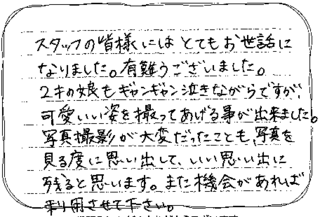 スタッフの皆様にはとてもお世話に
なりました。有難うございました。
2才の娘もギャンギャン泣きながらですが、
可愛いい姿を撮ってあげる事が出来ました。
写真撮影が大変だったことも、写真を
見る度に思い出して、いい思い出に
残ると思います。また機会があれば
利用させて下さい。